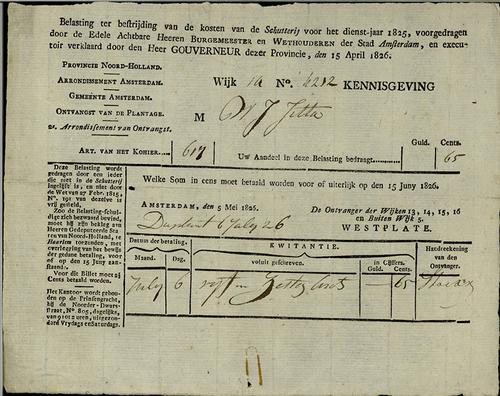 Belasting ter bestrijding van de kosten van de Schutterij voor het dienst-jaar 1825, voorgedragen
door de Edele Achtbare Heeren BURGEMEESTER en WETHOUDEREN der Stad Amsterdam, en execu-
toir verklaard door den Heer GOUVERNEUR dezer Provincie, den 15 April 1826.
PROVINCIE NOORD-HOLLAND.
ARRONDISSEMENT AMSTERDAM.
GEMEENTE AMSTERDAM.
ONTVANGST VAN DE PLANTAGE.
2e. Arrondissement van Ontvangst.
Wijk 14 No. 4212 KENNISGEVING
M W J Jetta
ART. VAN HET KOHIER. 617
Guld. Cents.
Uw Aandeel in deze Belasting bedraagt 65
Deze Belasting wordt
gedragen door een ieder
die niet in de Schutterij
ingelijfd is, en niet door
de Wet van 27 Febr. 1815,
No. 191 van dezelve is
vrij gesteld.
Zoo de Belasting-schul-
dige zich bezwaard bevind,
moet hij zijn beklag aan
Heeren Gedeputeerde Sta-
ten van Noord-Holland, te
Haarlem toezenden, met
overlegging van het bewijs
der gedane betaling, voor
of op den 15 Juny aan-
staande.
Voor dit Billet moet 2½
Cents betaald worden.
Het Kantoor wordt gehou-
den op de Prinsengracht,
bij de Noorder-Dwars-
straat, No. 805, dagelijks,
van 9 tot 2 uren, uitgezon-
derd Vrydags en Saturdags.
Welke Som in eens moet betaald worden voor of uiterlijk op den 15 Juny 1826.
AMSTERDAM, den 5 Mei 1826.
De Ontvanger der Wijken 13, 14, 15, 16
en Buiten Wijk 5.
WESTPLATE.
6 July 26
Datum der betaling.
Maand. Dag.
KWITANTIE.
voluit geschreven.
in Cijffers.
Guld. Cents.
Handteekening
van den
Ontvanger.
July 6 vijf en Zestig Cents 65